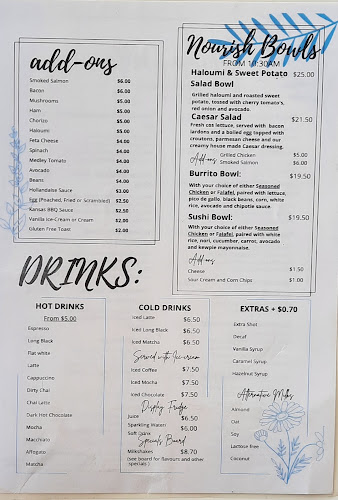 add-ons
Smoked Salmon $6.00
Bacon $6.00
Mushrooms $5.00
Ham $5.00
Chorizo $5.00
Haloumi $5.00
Feta Cheese $4.00
Spinach $4.00
Medley Tomato $4.00
Avocado $4.00
Beans $4.00
Hollandaise Sauce $3.00
Egg (Poached, Fried or Scrambled) $2.50
Kansas BBQ Sauce $2.50
Vanilla Ice-Cream or Cream $2.00
Gluten Free Toast $2.00
Nourish Bowls
FROM 10:30AM
Haloumi & Sweet Potato $25.00
Salad Bowl
Grilled haloumi and roasted sweet
potato, tossed with cherry tomato's,
red onion and avocado.
Caesar Salad $21.50
Fresh cos lettuce, served with bacon
lardons and a boiled egg topped with
croutons, parmesan cheese and our
creamy house made Caesar dressing.
Add-ons Grilled Chicken $5.00
Smoked Salmon $6.00
Burrito Bowl: $19.50
With your choice of either Seasoned
Chicken or Falafel, paired with lettuce,
pico de gallo, black beans, corn, white
rice, avocado and chipotle sauce
Sushi Bowl: $19.50
With your choice of either Seasoned
Chicken or Falafel, paired with white
rice, nori, cucumber, carrot, avocado
and kewpie mayonnaise.
Add-ons
Cheese $1.50
Sour Cream and Corn Chips $1.00
DRINKS:
HOT DRINKS
From $5.00
Espresso
Long Black
Flat white
Latte
Cappuccino
Dirty Chai
Chai Latte
Dark Hot Chocolate
Mocha
Macchiato
Affogato
Matcha
COLD DRINKS
Iced Latte $6.50
Iced Long Black $6.50
Iced Matcha $6.50
Served with Ice-cream
Iced Coffee $7.50
Iced Mocha $7.50
Iced Chocolate $7.50
Display Fridge
Juice $6.50
Sparkling Water $6.00
Soft Drink
Specials Board
Milkshakes $8.70
(see board for flavours and other
specials )
EXTRAS + $0.70
Extra Shot
Decaf
Vanilla Syrup
Caramel Syrup
Hazelnut Syrup
Alternative Milks
Almond
Oat
Soy
Lactose free
Coconut